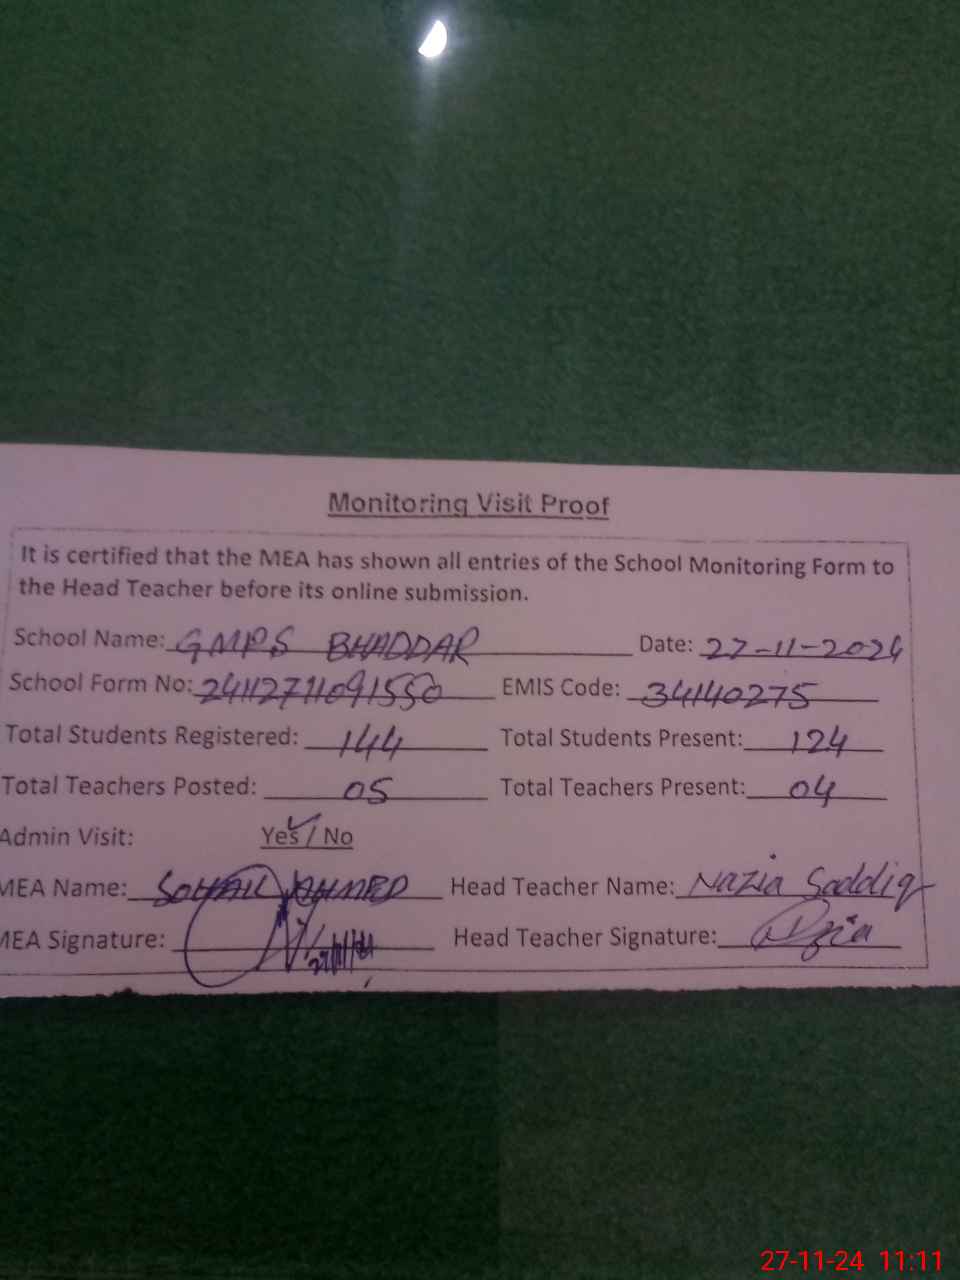 Monitoring Visit Proof
It is certified that the MEA has shown all entries of the School Monitoring Form to
the Head Teacher before its online submission.
School Name: GMPS BHADDAR Date: 27-11-2024
School Form No: 24112711091550 EMIS Code: 34140275
Total Students Registered: 144 Total Students Present: 124
Total Teachers Posted: 05 Total Teachers Present: 04
Admin Visit: Yes / No
MEA Name: SOHAIL AHMED Head Teacher Name: Nazia Saddiq
MEA Signature: 27/11/24 Head Teacher Signature: Nazia
27-11-24 11:11